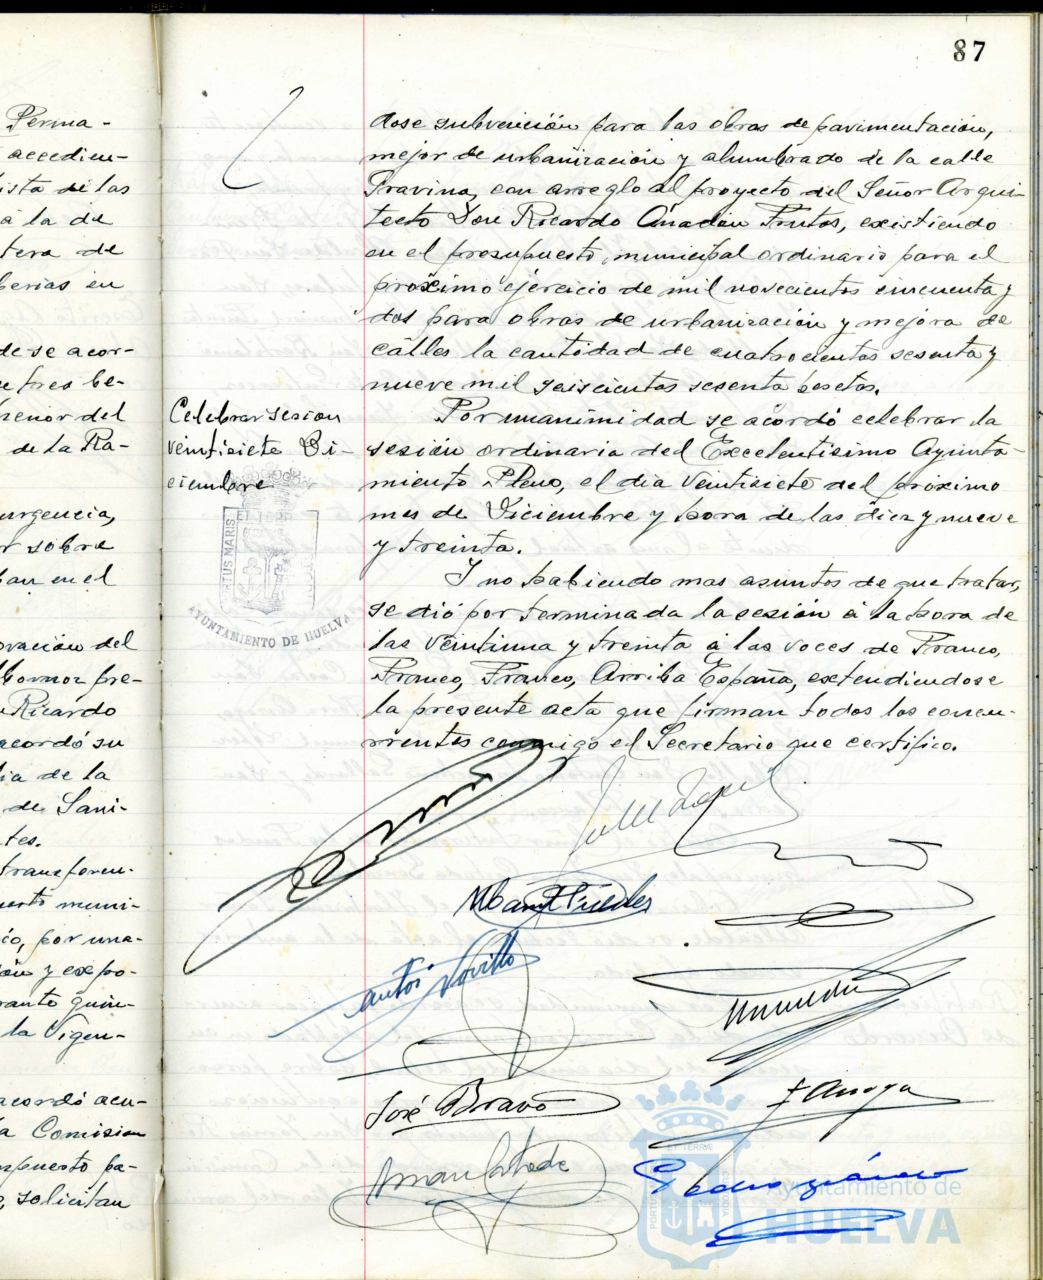 87
Perma-
accedien-
ista de las
á la de
tera de
berias en
de se acor-
tres be-
menor del
de la Ra-
urgencia,
r sobre
ban en el
ovación del
pre-
Ricardo
acordó su
ia de la
de Sani-
tes.
transferen-
muni-
co, por una-
ón y expo-
ranto quin-
la Vigen-
acordó acu-
a Comision
mpuesto pa-
solicitan
dose subvención para las obras de pavimentación,
mejor de urbanización y alumbrado de la calle
con arreglo al proyecto del Señor Arqui-
tecto Don Ricardo Anadón Frutos, existiendo
en el presupuesto municipal ordinario para el
próximo ejercicio de mil novecientos cincuenta y
dos para obras de urbanización y mejora de
calles la cantidad de cuatrocientos sesenta y
nueve mil seiscientos sesenta pesetas.
Celebrar sesion
veintisiete Di-
ciembre
Por unanimidad se acordó celebrar la
sesión ordinaria del Excelentisimo Ayunta-
miento Pleno, el dia veintisiete del próximo
mes de Diciembre y hora de las diez y nueve
y treinta.
Y no habiendo mas asuntos de que tratar,
se dió por terminada la sesión á la hora de
las veintiuna y treinta á las voces de Franco,
Franco, Franco, Arriba España, extendiendose
la presente acta que firman todos los concu-
rrentes conmigo el Secretario que certifico.
ET TERRE
AYUNTAMIENTO DE HUELVA
José Bravo
Ayuntamiento de
HUELVA